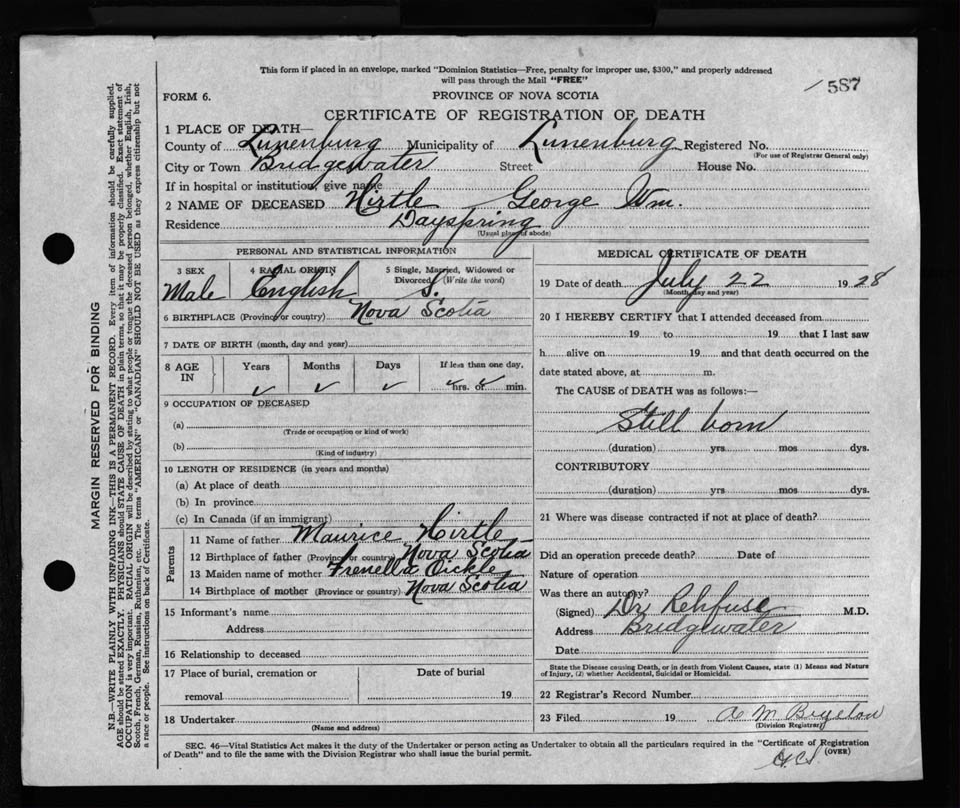 This form if placed in an envelope, marked "Dominion Statistics—Free, penalty for improper use, $300," and properly addressed
will pass through the Mail "FREE"
587
FORM 6.
PROVINCE OF NOVA SCOTIA
CERTIFICATE OF REGISTRATION OF DEATH
1 PLACE OF DEATH—
County of Lunenburg Municipality of Lunenburg Registered No.
(For use of Registrar General only)
City or Town Bridgewater Street House No.
If in hospital or institution, give name
2 NAME OF DECEASED Hirtle George Wm.
Residence Dayspring
(Usual place of abode)
PERSONAL AND STATISTICAL INFORMATION
3 SEX 4 RACIAL ORIGIN 5 Single, Married, Widowed or
Divorced (Write the word)
Male English S.
6 BIRTHPLACE (Province or country) Nova Scotia
7 DATE OF BIRTH (month, day and year)
8 AGE IN Years Months Days If less than one day,
✓ ✓ ✓ ✓ hrs. or ✓ min.
9 OCCUPATION OF DECEASED
(a)
(Trade or occupation or kind of work)
(b)
(Kind of industry)
10 LENGTH OF RESIDENCE (in years and months)
(a) At place of death
(b) In province
(c) In Canada (if an immigrant)
Parents
11 Name of father Maurice Hirtle
12 Birthplace of father (Province or country) Nova Scotia
13 Maiden name of mother Frenella Oickle
14 Birthplace of mother (Province or country) Nova Scotia
15 Informant's name
Address
16 Relationship to deceased
17 Place of burial, cremation or Date of burial
removal 19
18 Undertaker
(Name and address)
MEDICAL CERTIFICATE OF DEATH
19 Date of death July 22 1928
(Month, day and year)
20 I HEREBY CERTIFY that I attended deceased from
19 to 19 that I last saw
h alive on 19 and that death occurred on the
date stated above, at m.
The CAUSE of DEATH was as follows:—
Still born
(duration) yrs mos dys.
CONTRIBUTORY
(duration) yrs mos dys.
21 Where was disease contracted if not at place of death?
Did an operation precede death? Date of
Nature of operation
Was there an autopsy?
(Signed) Dr Rehfuse M.D.
Address Bridgewater
Date
State the Disease causing Death, or in death from Violent Causes, state (1) Means and Nature
of Injury, (2) whether Accidental, Suicidal or Homicidal.
22 Registrar's Record Number
23 Filed 19
(Division Registrar)
SEC. 46—Vital Statistics Act makes it the duty of the Undertaker or person acting as Undertaker to obtain all the particulars required in the "Certificate of Registration
of Death" and to file the same with the Division Registrar who shall issue the burial permit.
(OVER)
MARGIN RESERVED FOR BINDING
N.B.—WRITE PLAINLY WITH UNFADING INK—THIS IS A PERMANENT RECORD. Every item of information should be carefully supplied.
AGE should be stated EXACTLY. PHYSICIANS should STATE CAUSE OF DEATH in plain terms, so that it may be properly classified. Exact statement of
OCCUPATION is very important. RACIAL ORIGIN will be described by stating to what people or tongue the deceased person belonged, whether English, Irish,
Scotch, French, German, Russian, Ruthenian, etc. The terms "AMERICAN" or "CANADIAN" SHOULD NOT BE USED as they express citizenship but not
a race or people. See instructions on back of Certificate.